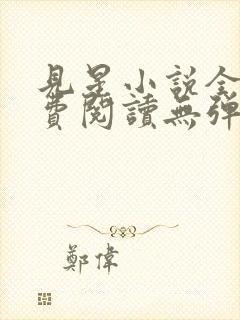 見星小說全
費閱讀無彈
鄭偉